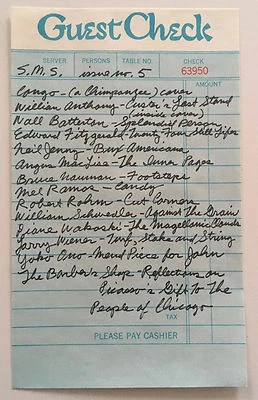 Guest Check
SERVER PERSONS TABLE NO. CHECK
S.M.S. issue no. 5 63950
AMOUNT
Congo - (a Chimpanzee) cover
William Anthony - Custer's Last Stand
(inside cover)
Wall Batterton - Splendid Person
Edward Fitzgerald - Twenty Four Still Lifes
Neil Jenny - Bux Americana
Angus MacLise - The Inner Pages
Bruce Nauman - Footsteps
Mel Ramos - Candy
Robert Rohm - Cut Corners
William Schwedler - Against The Grain
Diane Wakoski - The Magellanic Clouds
Larry Wiener - Turf, Stake and String
Yoko Ono - Mend Piece for John
The Barber's Shop - Reflections on
Picasso's Gift To The
People of Chicago
TAX
PLEASE PAY CASHIER